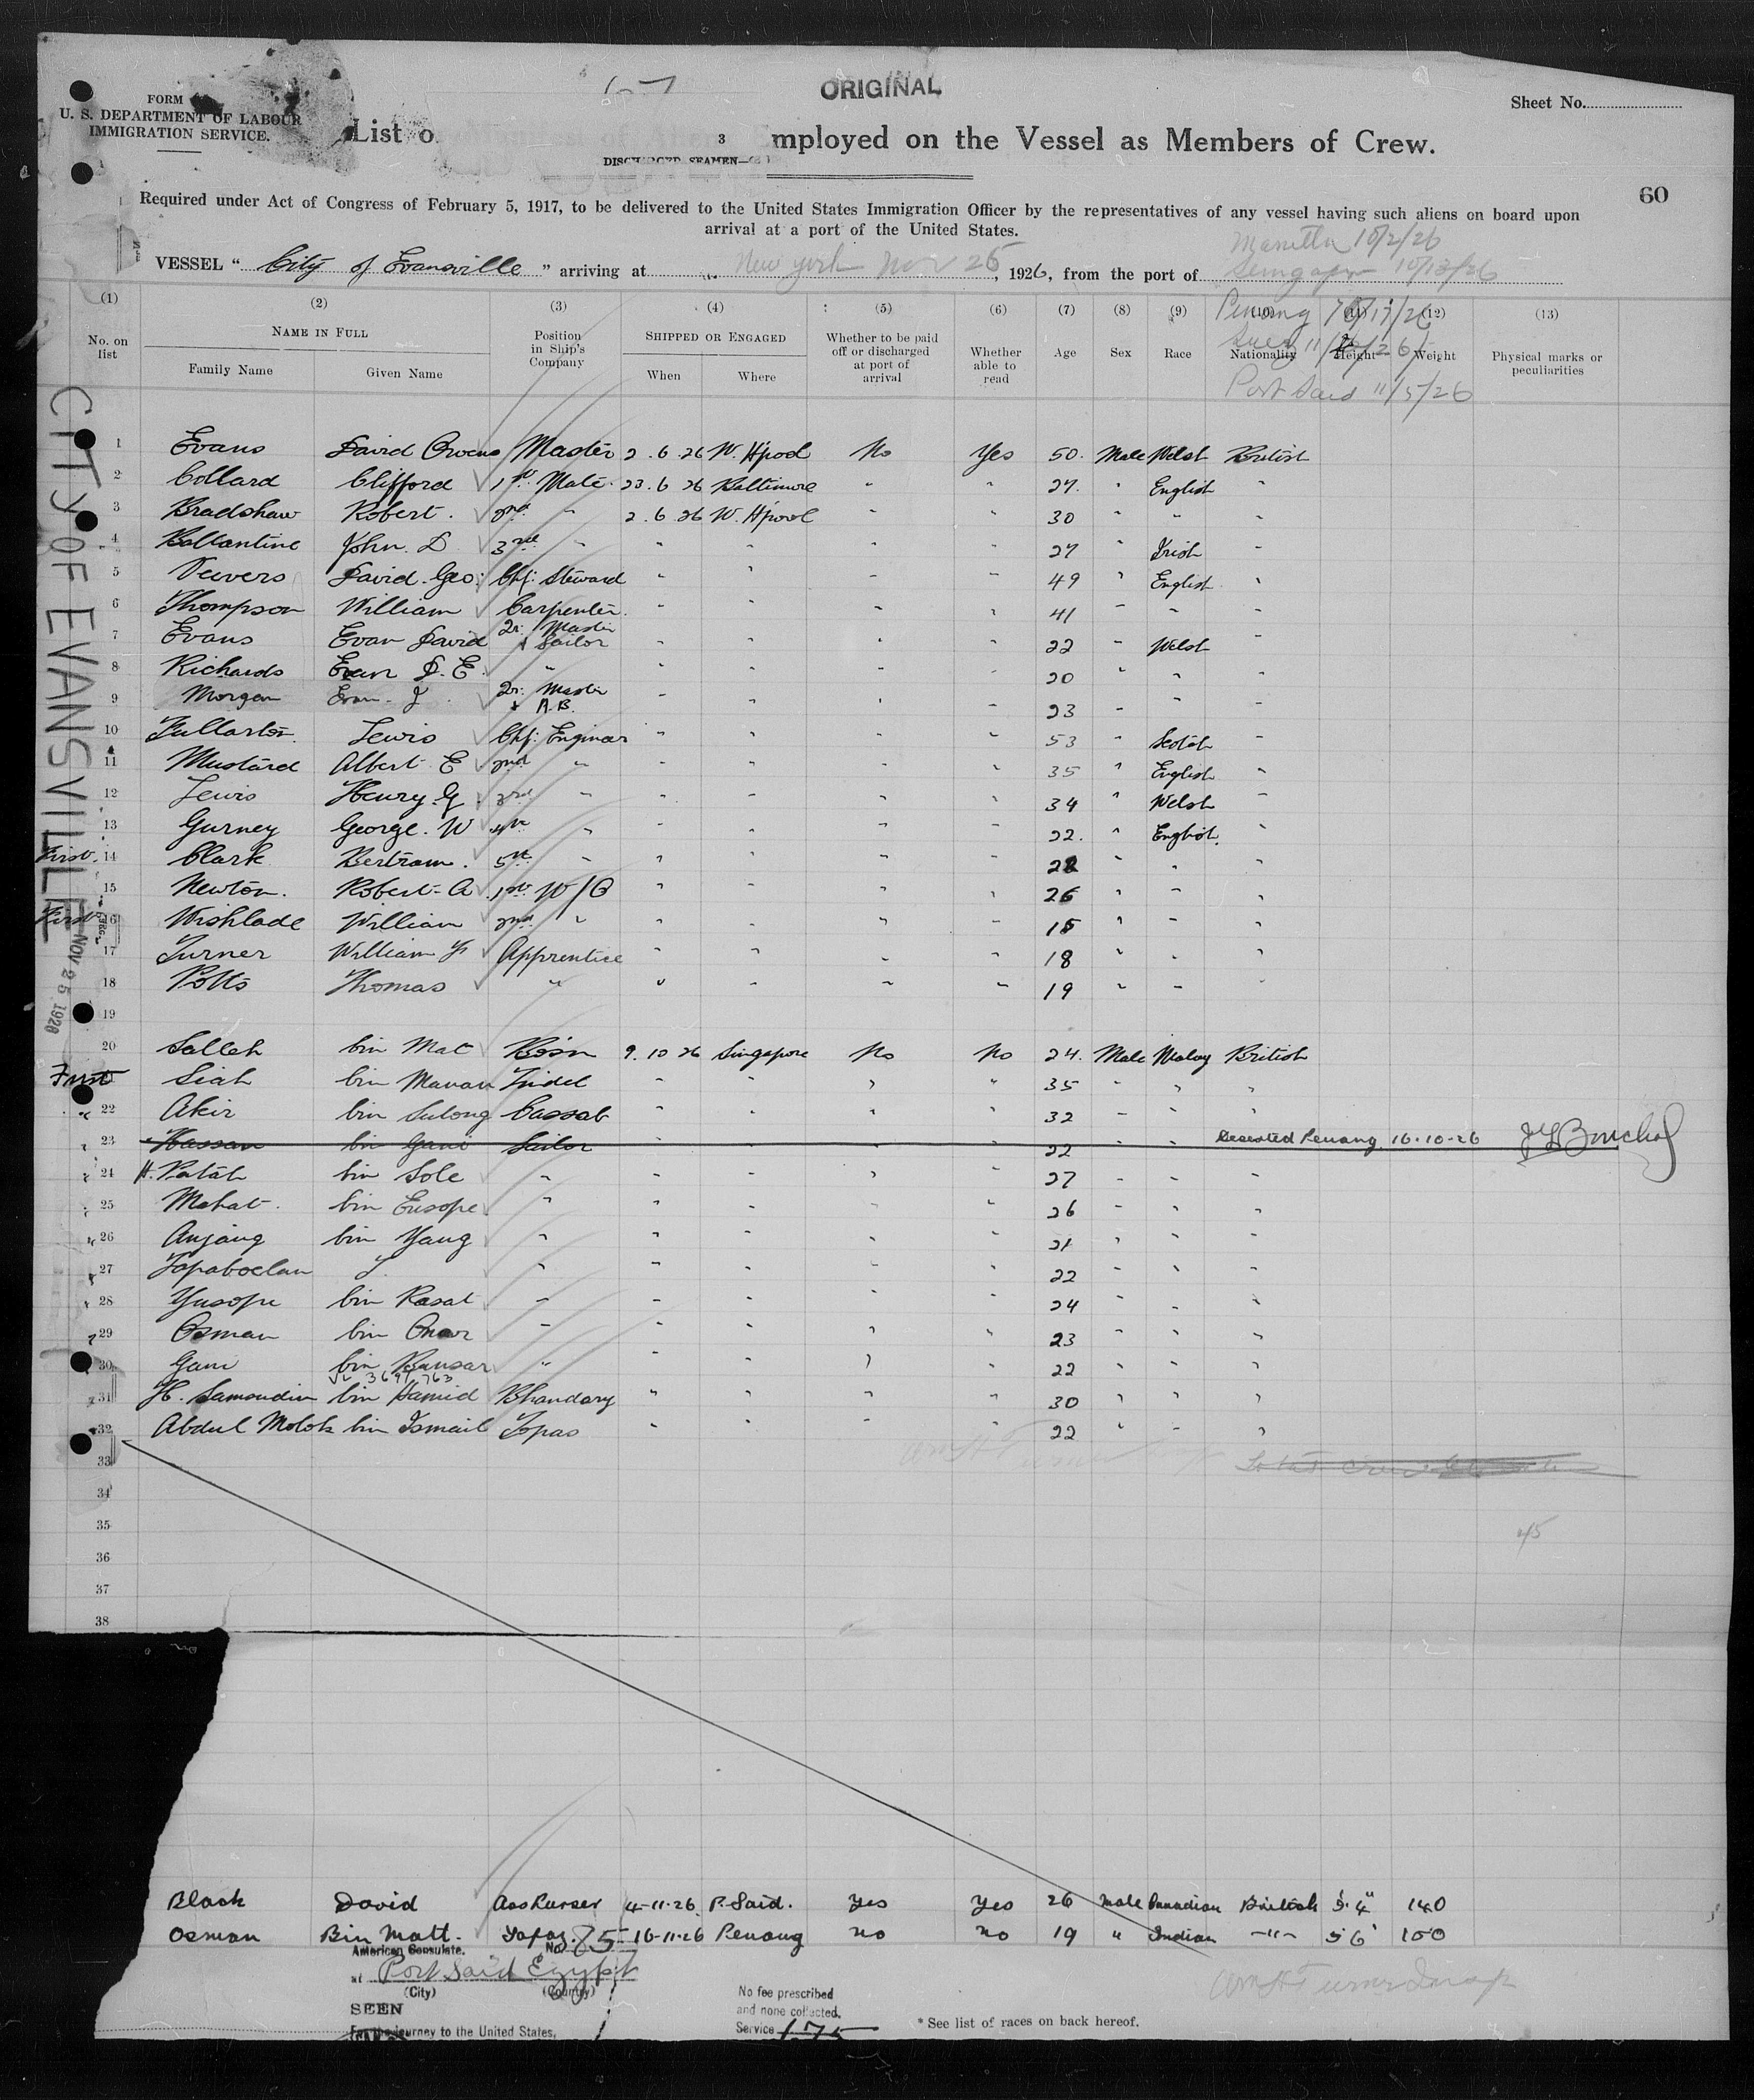 ORIGINAL
FORM
U. S. DEPARTMENT OF LABOUR
IMMIGRATION SERVICE.
Sheet No.
List o 3 mployed on the Vessel as Members of Crew.
60
Required under Act of Congress of February 5, 1917, to be delivered to the United States Immigration Officer by the representatives of any vessel having such aliens on board upon
arrival at a port of the United States.
Manilla 10/2/26
VESSEL " City of Evansville " arriving at New York Nov 25, 1926, from the port of Singapor 10/13/26
Penang 10/17/26
Suez 11/ /26
Port Said 11/5/26
(1) (2) (3) (4) (5) (6) (7) (8) (9) (10) (11) (12) (13)
No. on list NAME IN FULL Family Name Given Name Position in Ship's Company SHIPPED OR ENGAGED When Where Whether to be paid off or discharged at port of arrival Whether able to read Age Sex Race Nationality Height Weight Physical marks or peculiarities
CITY OF EVANSVILLE
NOV 25 1926
1 Evans David Owens Master 2.6.26 W. H'pool No Yes 50. Male Welsh British
2 Collard Clifford 1st Mate 23.6 26 Baltimore " " 27. " English "
3 Bradshaw Robert. 2nd " 2.6.26 W. H'pool " " 30 " " "
4 Ballantine John. D 3rd " " " " " 27 " Irish "
5 Deevers David. Geo: Chf: Steward " " " " 49 " English "
6 Thompson William Carpenter. " " " " 41 " " "
7 Evans Evan David Qr: Master & Sailor " " " " 22 " Welsh
8 Richards Evan D. E. " " " " " 20 " " "
9 Morgan Evan. J. Qr: Master & A.B. " " " " 23 " " "
10 Fullarton. Lewis Chf: Engineer " " " " 53 " Scotch "
11 Mustard Albert E 2nd " " " " " 35 " English "
12 Lewis Henry. G. 3rd " " " " " 34 " Welsh "
13 Gurney George. W 4th " " " " " 22. " English. "
First 14 Clark Bertram. 5th " " " " " " " "
15 Newton. Robert. A. 1st W/O " " " " 26 " " "
First 16 Wishlade William 2nd " " " " " " " "
17 Turner William Apprentice " " " " 18 " " "
18 Potts Thomas " " " " " 19 " " "
19
20 Salleh bin Mat Bosn 9.10 26 Singapore No No 24. Male Malay British
First Siah bin Manan Tindel " " " " 35 " " "
22 Akir bin Sulong Cassab " " " " 32 " " "
23 Hassan bin Gani Sailor " " " " 22 " " Deserted Penang 16-10-26
24 H. Patah bin Sole " " " " " 27 " " "
25 Mahat. bin Eusope " " " " " 26 " " "
26 Anjang bin Yang " " " " " 21 " " "
27 Tapaboelan " " " " " 22 " " "
28 Yusope bin Rasat " " " " " 24 " " "
29 Osman bin Omar " " " " " 23 " " "
30 Gani bin Bansar " " " " " 22 " " "
31 H. Samoudin bin Hamid Bhandary " " " " 30 " " "
32 Abdul Molok bin Ismail Topas " " " " 22 " " "
33
34
35
45
36
37
38
Black David Ass Purser 4-11-26. P. Said. Yes Yes 26 Male Canadian British 5' 4" 140
Osman Bin Matt. Topaz. 16-11-26 Penang no no 19 " Indian -"- 5 6' 100
American Consulate. No. 75
at Port Said Egypt
(City) (Country)
SEEN
For the journey to the United States,
No fee prescribed
and none collected.
Service 175
* See list of races on back hereof.